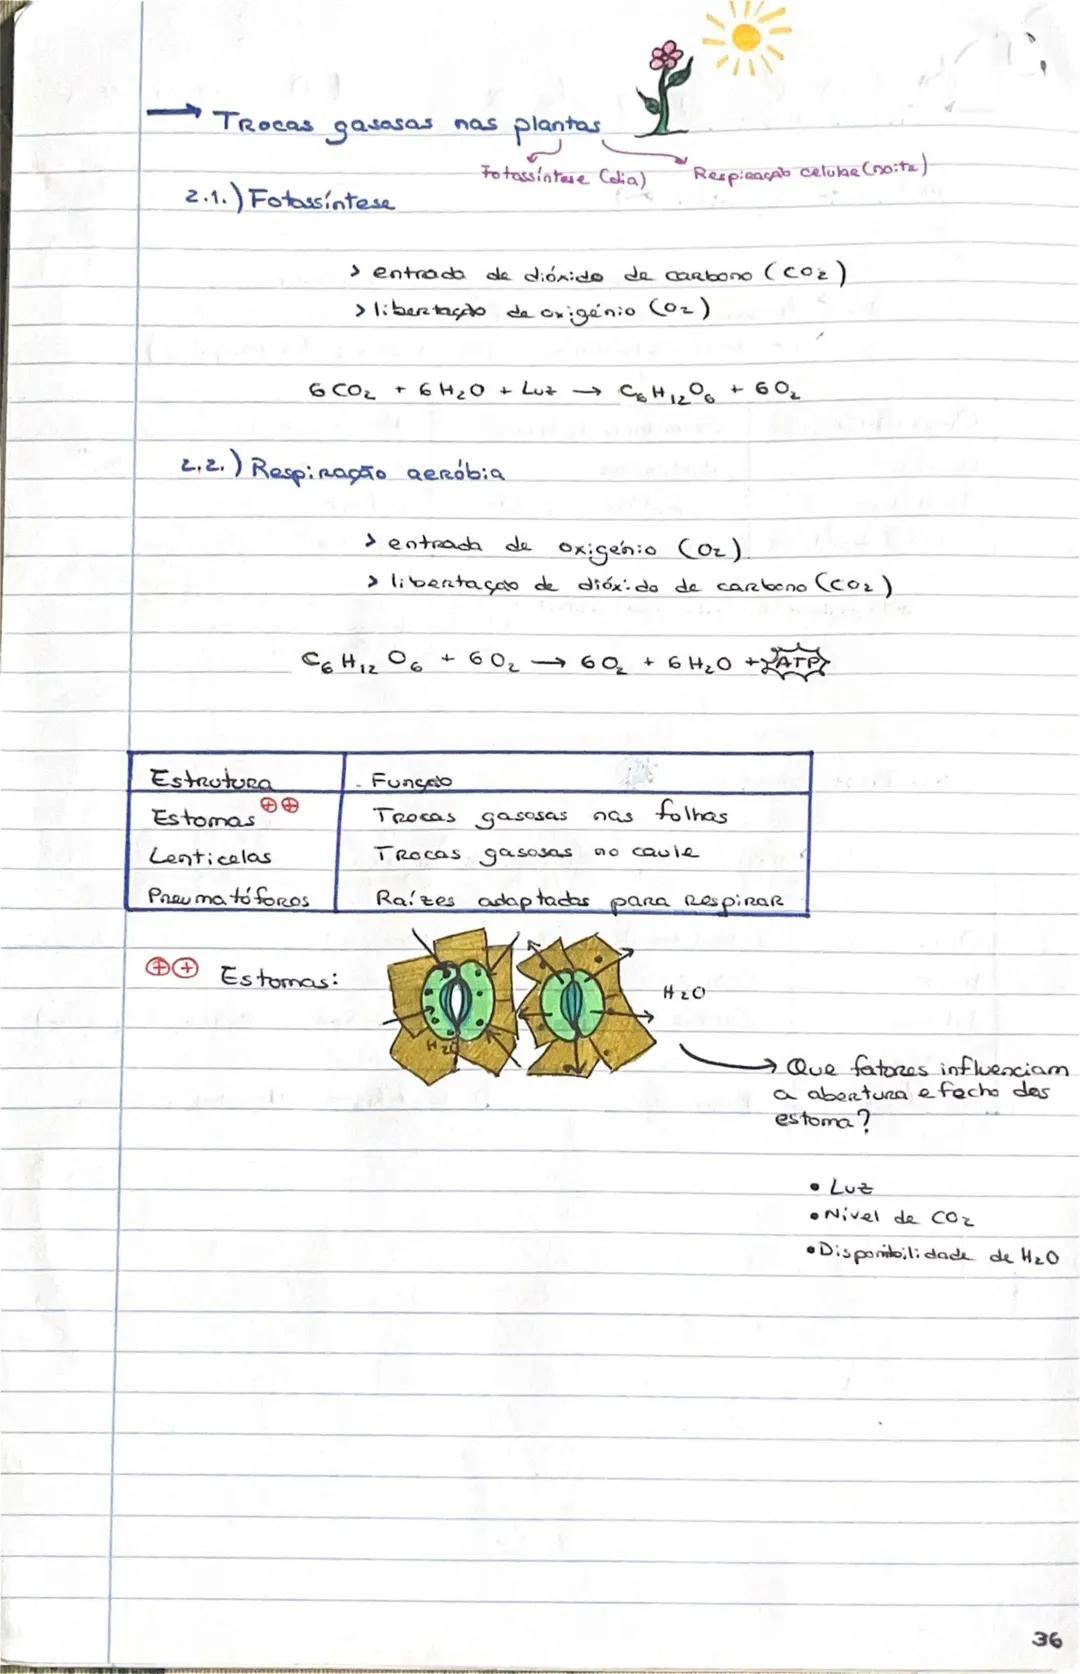 → Trocas gasosas nas plantas
Fotossíntese (dia) Respiração celular (noite)
2.1.) Fotossíntese
> entrada de dióxido de carbono (CO₂)
> libertação de oxigénio (O₂)
6 CO₂ + 6 H₂O + Luz → C₆H₁₂O₆ + 6 O₂
2.2.) Respiração aeróbia
> entrada de oxigénio (O₂)
> libertação de dióxido de carbono (CO₂)
C₆H₁₂O₆ + 6O₂ → 6O₂ + 6H₂O + ATP
Estrutura Função
Estomas ⊕⊕ Trocas gasosas nas folhas
Lenticelas Trocas gasosas no caule
Pneumatóforos Raízes adaptadas para respirar
⊕⊕ Estomas:
H₂O
H₂O
→ Que fatores influenciam
a abertura e fecho dos
estoma?
• Luz
• Nível de CO₂
• Disponibilidade de H₂O
36